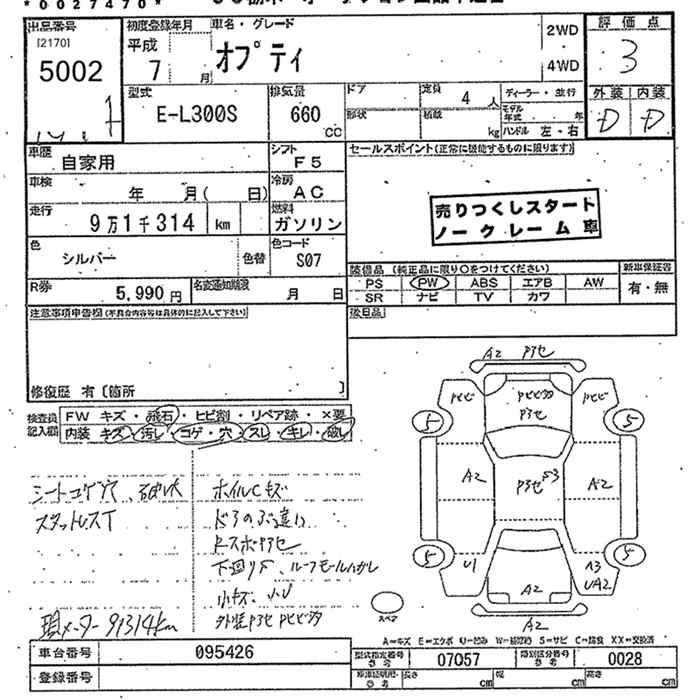 *0027470*
出品番号
[2170]
5002
初度登録年月
平成
7 月
車名・グレード
オプティ
2WD
4WD
評価点
3
外装 内装
D D
型式
E-L300S
排気量
660
CC
ドア
定員
4 人
形状
積載
kg
ディーラー・並行
モデル年式 年
ハンドル 左・右
車歴
自家用
シフト
F5
車検
年 月( 日)
冷房
AC
走行
9万1千314 km
燃料
ガソリン
色
シルバー
色替
色コード
S07
R券
5,990 円
名変通知期限
月 日
セールスポイント(正常に機能するものに限ります)
売りつくしスタート
ノークレーム車
装備品 (純正品に限り○をつけてください)
PS PW ABS エアB AW
SR ナビ TV カワ
新車保証書
有・無
後日品
注意事項申告欄(不具合内容等は具体的に記入して下さい)
修復歴 有〔箇所 〕
検査員記入欄
FW キズ・飛石・ヒビ割・リペア跡・×要
内装 キズ・汚レ・コゲ・穴・スレ・キレ・破レ
シートコゲ穴、破レ大
スタットレスT
ホイルCキズ
ドアのぶ違い
RスポPヤセ
下回りS、ルーフモールハガレ
小キズ、小U
外装Pヤセ Pヒビ多
現メーター91314km
A2 Pヤセ
Pヒビ
Pヒビ多
Pヤセ
Pヒビ
5
5
A2
PヤセS3
A2
5
5
U1
A3
UA2
A2
A2
スペア
A=キズ E=エクボ U=凹み W=補修跡 S=サビ C=腐食 XX=交換済
車台番号
095426
登録番号
型式指定番号
参考
07057
類別区分番号
参考
0028
車庫証明用
参考
長さ cm
幅 cm
高さ cm